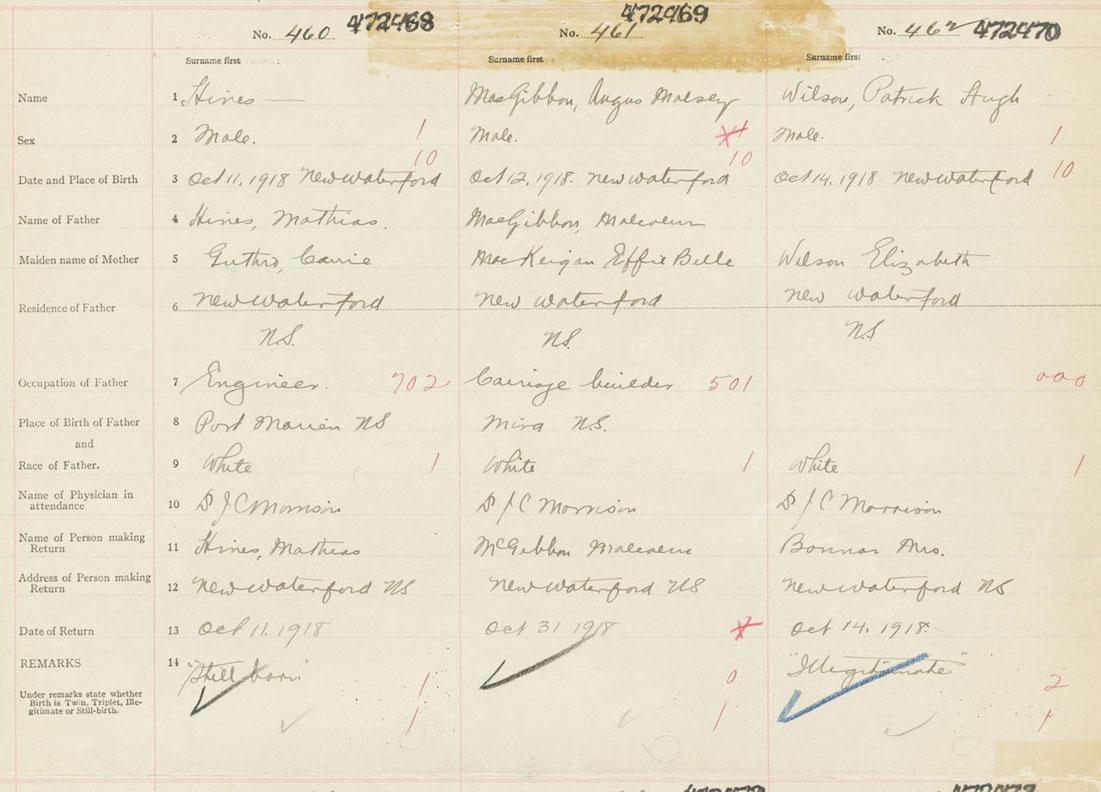 No. 460 472468 No. 461 472469 No. 462 472470
Surname first Surname first Surname first
Name 1 Hines — MacGibbon, Angus Wilson, Patrick Hugh
Sex 2 Male. 1 Male. 1 Male. 1
10 10
Date and Place of Birth 3 Oct 11, 1918 New Waterford Oct 12, 1918. New Waterford Oct 14, 1918 New Waterford 10
Name of Father 4 Hines, Mathias. MacGibbon, Malcolm
Maiden name of Mother 5 Guthro, Carrie MacKeigan Effie Belle Wilson Elizabeth
Residence of Father 6 New Waterford New Waterford New Waterford
N.S. N.S. N.S
Occupation of Father 7 Engineer. 702 Carriage builder 501 000
Place of Birth of Father 8 Port Morien NS Mira N.S.
and
Race of Father. 9 White 1 White 1 White 1
Name of Physician in
attendance 10 Dr J C Morrison Dr J C Morrison Dr J C Morrison
Name of Person making
Return 11 Hines, Mathias McGibbon Malcolm Bonnar Mrs.
Address of Person making
Return 12 New Waterford NS New Waterford NS New Waterford NS
Date of Return 13 Oct 11. 1918 Oct 31 1918 Oct 14. 1918.
REMARKS 14 "Still born" 1 0 "Illegitimate" 2
Under remarks state whether
Birth is Twin, Triplet, Ille-
gitimate or Still-birth. 1 1 1